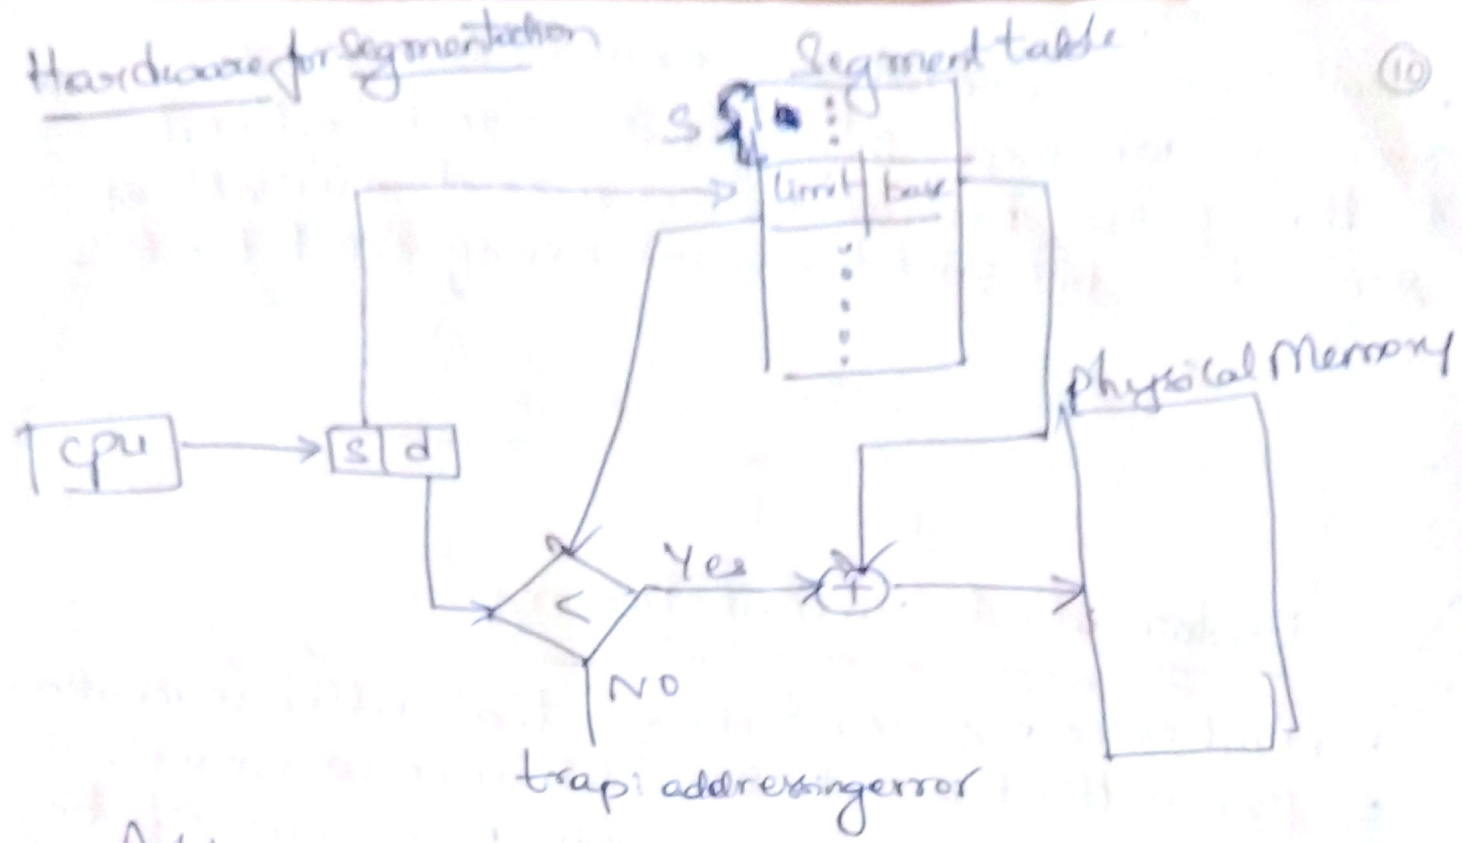 Hardware for Segmentation
Segment table
10
S
limit base
Physical Memory
CPU
s d
<
Yes
+
NO
trap: addressing error